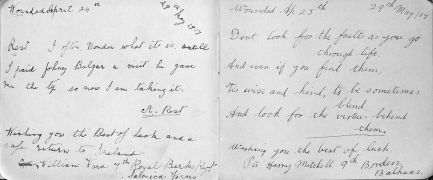 Wounded April 24th
29th May 1917
Rest. I often Wonder what it is. untill
I paid Johny Bulgar a visit he gave
me the tip so now I am taking it.
A. Rest
Wishing you the Best of luck and a
safe return to Ireland
William Ward 7th Royal Berks Regt
Salonica Forces
Wounded Ap 25th 29th May/17
Dont look for the faults as you go
through life
And even if you find them,
Tis wise and kind, to be sometimes
blind
And look for the virtues behind
them.
Wishing you the best of luck
Pte Harry Mitchell 9th Borders
Balkans.